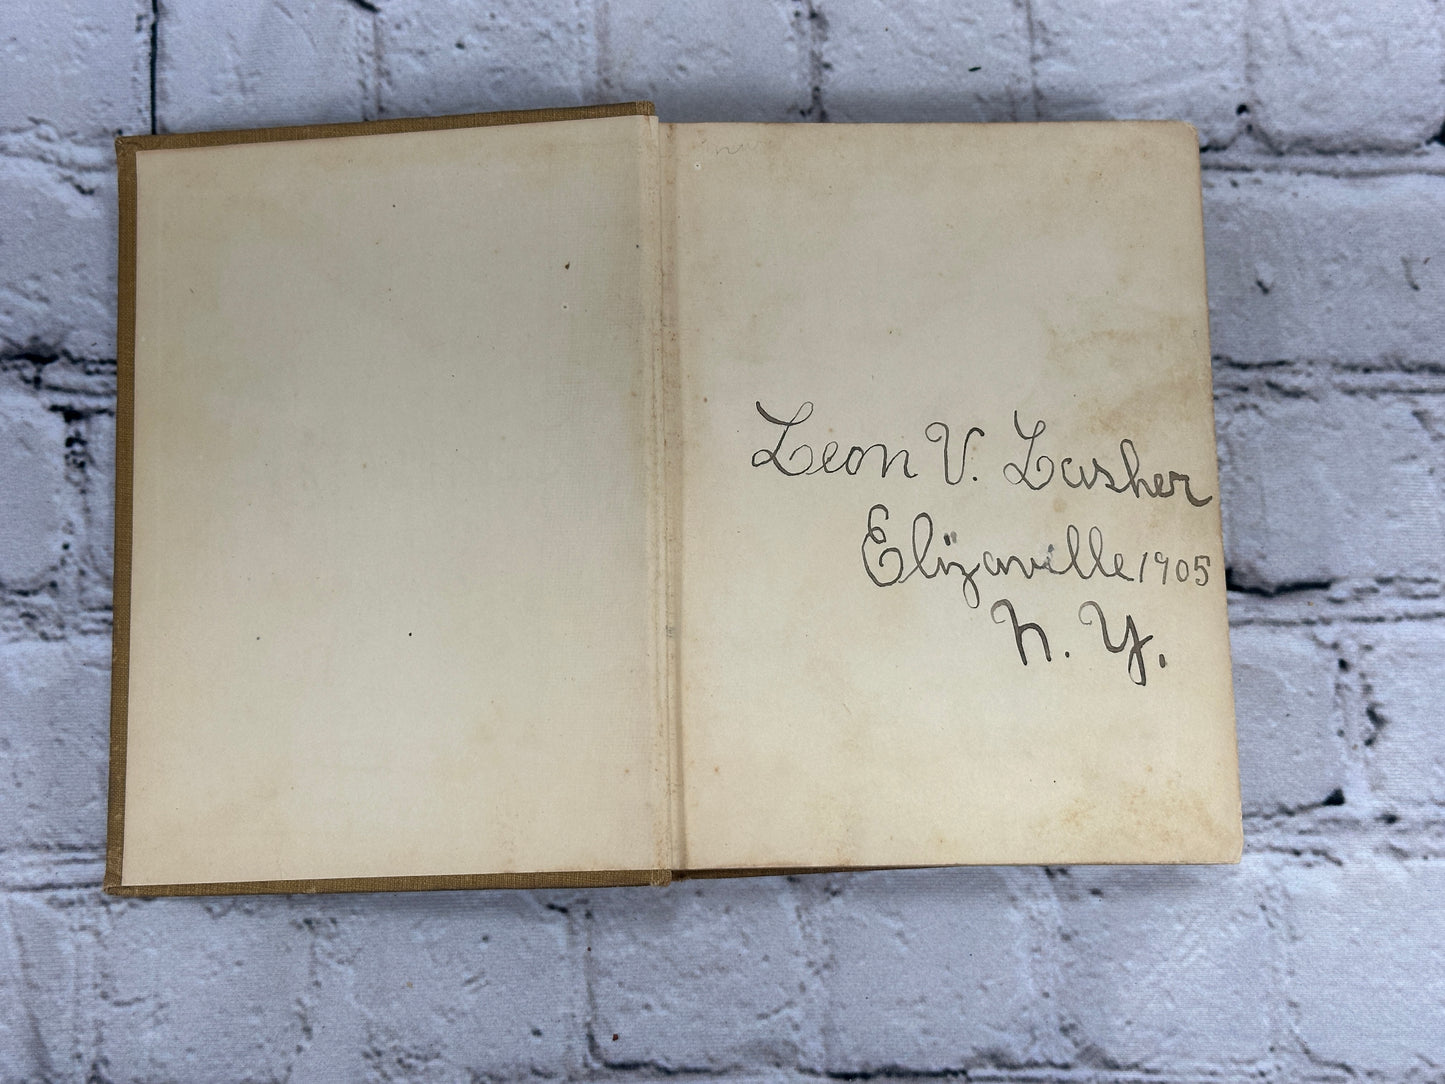 Leon V. Lasher
Elizaville 1905
N. Y.